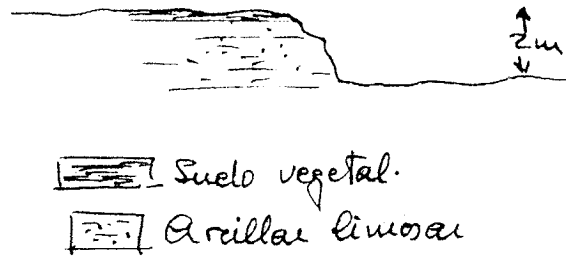 2m
Suelo vegetal.
Arcillas limosas